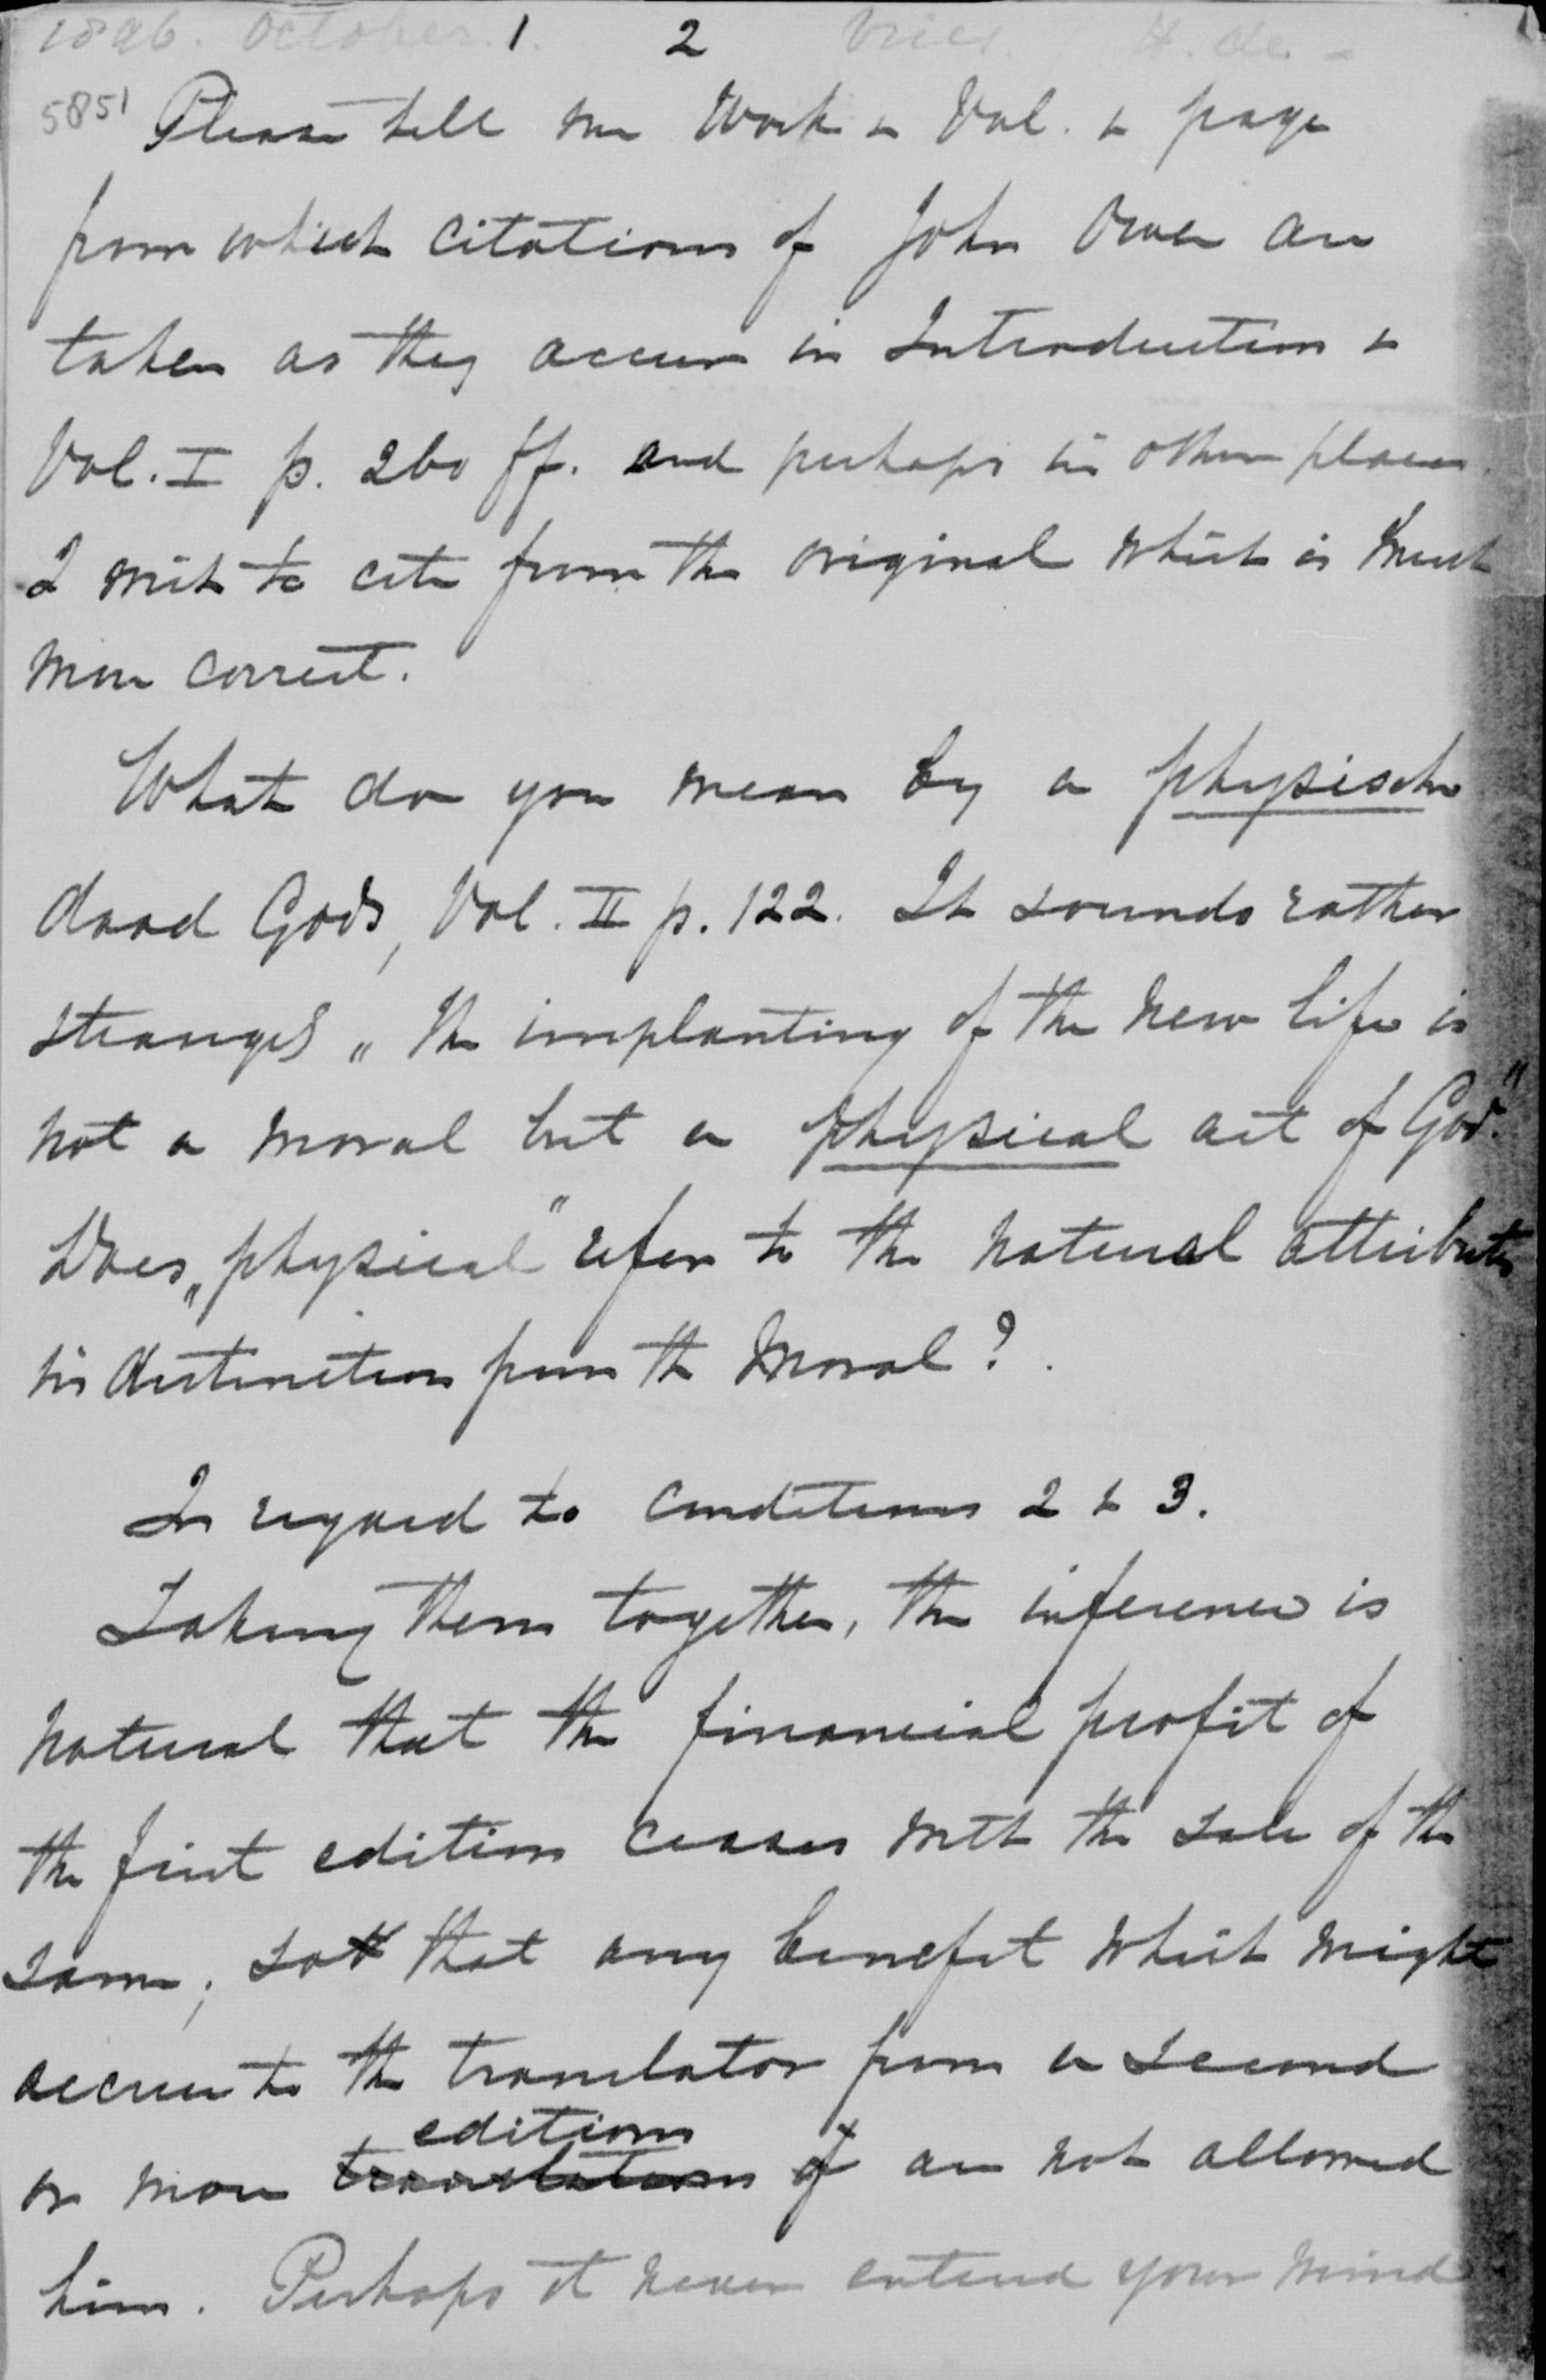 1896. October 1. 2 Vries H. de -
5851 Please tell me Work & Vol. & page
from which citations of John Owen are
taken as they occur in Introduction &
Vol. I p. 260 ff. and perhaps in other places.
I wish to cite from the original which is much
more correct.
What do you mean by a physische
daad Gods, Vol. II p. 122. It sounds rather
strange „ the implanting of the new life is
not a moral but a physical act of God."
Does „physical" refer to the natural attributes
in distinction from the moral?
In regard to conditions 2 & 3.
Taking them together, the inference is
natural that the financial profit of
the first edition ceases with the sale of the
same; so that any benefit which might
accrue to the translator from a second
editions
or more translations of are not allowed
him. Perhaps it never entered your mind